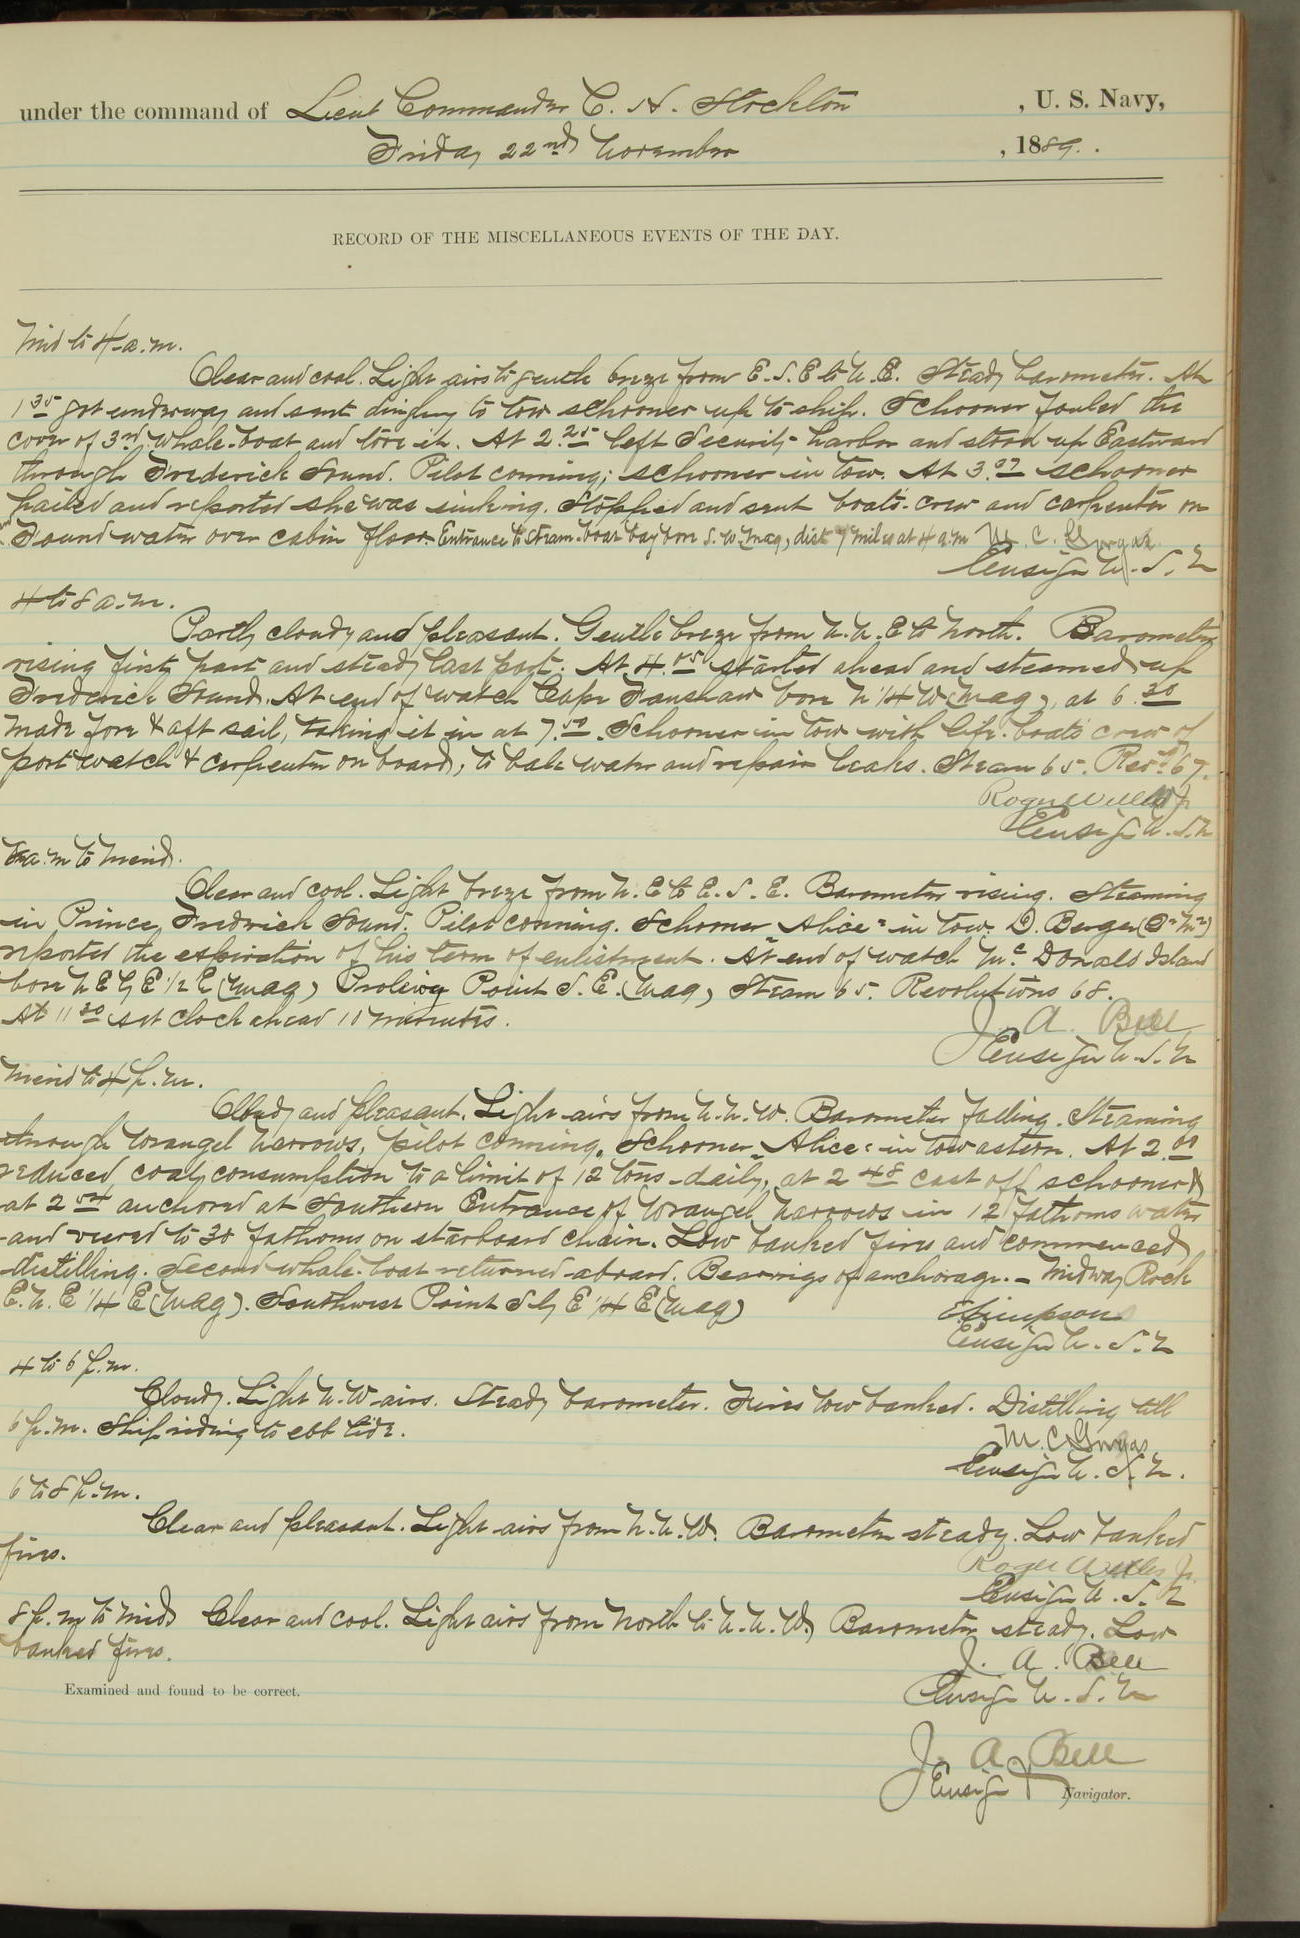 under the command of Lieut Commander C. H. Stockton , U. S. Navy,
Friday 22nd November , 1889.
RECORD OF THE MISCELLANEOUS EVENTS OF THE DAY.
Mid to 4 a.m.
Clear and cool. Light airs to gentle breeze from E.S.E to N.E. Steady barometer. At
1 35 got underway and sent dinghey to tow schooner up to ship. Schooner fouled the
cover of 3rd whale-boat and tore it. At 2.25 left Security harbor and stood up Eastward
through Frederick Sound. Pilot conning; schooner in tow. At 3.07 schooner
hailed and reported she was sinking. Stopped and sent boats-crew and carpenter on
Found water over cabin floor. Entrance to Steam-boat bay bore S.W. (mag) dist 7 miles at 4 a.m M. C. Gorgas
Ensign U.S.N
4 to 8 a.m.
Partly cloudy and pleasant. Gentle breeze from N.N.E to North. Barometer
rising first part and steady last part. At 4.05 started ahead and steamed up
Frederick Sound. At end of watch Cape Fanshaw bore N 1/4 W (mag), at 6.30
made fore & aft sail, taking it in at 7.50. Schooner in tow with life-boats crew of
port watch & carpenter on board, to bale water and repair leaks. Steam 65. Revs. 67.
Roger Welles Jr
Ensign U.S.N
8 a.m to Merid.
Clear and cool. Light breeze from N.E to E.S.E. Barometer rising. Steaming
in Prince Fredrick Sound. Pilot conning. Schooner "Alice" in tow. D. Berger
reported the expiration of his term of enlistment. At end of watch Mc Donald Island
bore N E by E 1/2 E (mag) Point S.E. (mag) Steam 65. Revolutions 68.
At 11 30 set clock ahead 10 minutes.
J. A. Bell
Ensign U.S.N
Merid to 4 p.m.
Cloudy and pleasant. Light airs from N.N.W. Barometer falling. Steaming
through Wrangel Narrows, pilot conning. Schooner "Alice" in tow astern. At 2.00
reduced coal consumption to a limit of 12 tons daily, at 2 48 cast off schooner &
at 2 54 anchored at Southern Entrance of Wrangel Narrows in 12 fathoms water
and veered to 30 fathoms on starboard chain. Low banked fires and commenced
distilling. Second whale-boat returned aboard. Bearings of anchorage. - Midway Rock
E.N.E 1/4 E (Mag). Southwest Point S by E 1/4 E (Mag)
E Simpson
Ensign U.S.N
4 to 6 p.m.
Cloudy. Light N.W airs. Steady barometer. Fires low banked. Distilling till
6 p.m. Ship riding to ebb tide.
M. C. Gorgas
Ensign U.S.N.
6 to 8 p.m.
Clear and pleasant. Light airs from N.N.W. Barometer steady. Low banked
fires.
Roger Welles Jr.
Ensign U.S.N
8 p.m to Mid Clear and cool. Light airs from North to N.N.W. Barometer steady. Low
banked fires.
J. A. Bell
Ensign U.S.N
Examined and found to be correct.
J. A. Bell
Ensign Navigator.